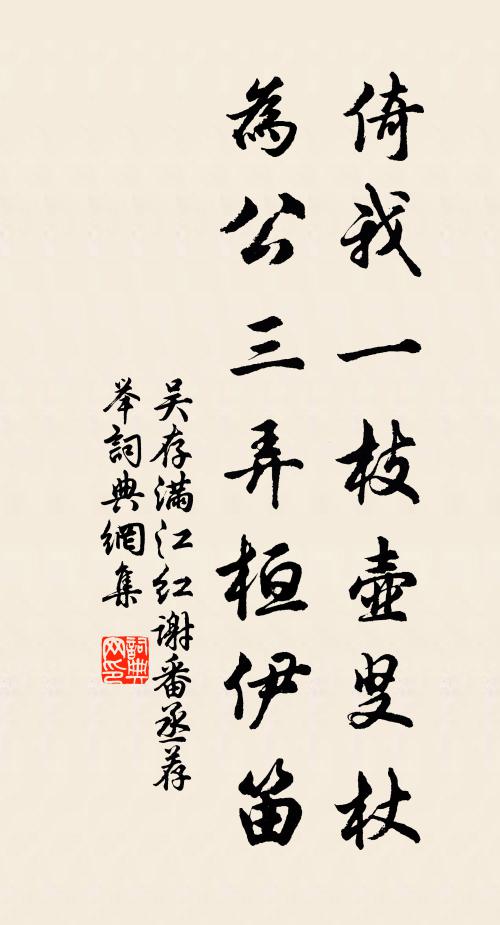 倚我一枝壺叟杖
為公三弄桓伊笛
吴存满江红謝番丞荐
举詞典網集
詞典
网印